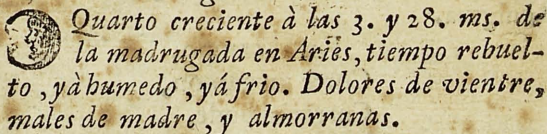 Quarto creciente à las 3. y 28. ms. de
la madrugada en Aries, tiempo rebuel-
to, yà humedo, yá frio. Dolores de vientre,
males de madre, y almorranas.